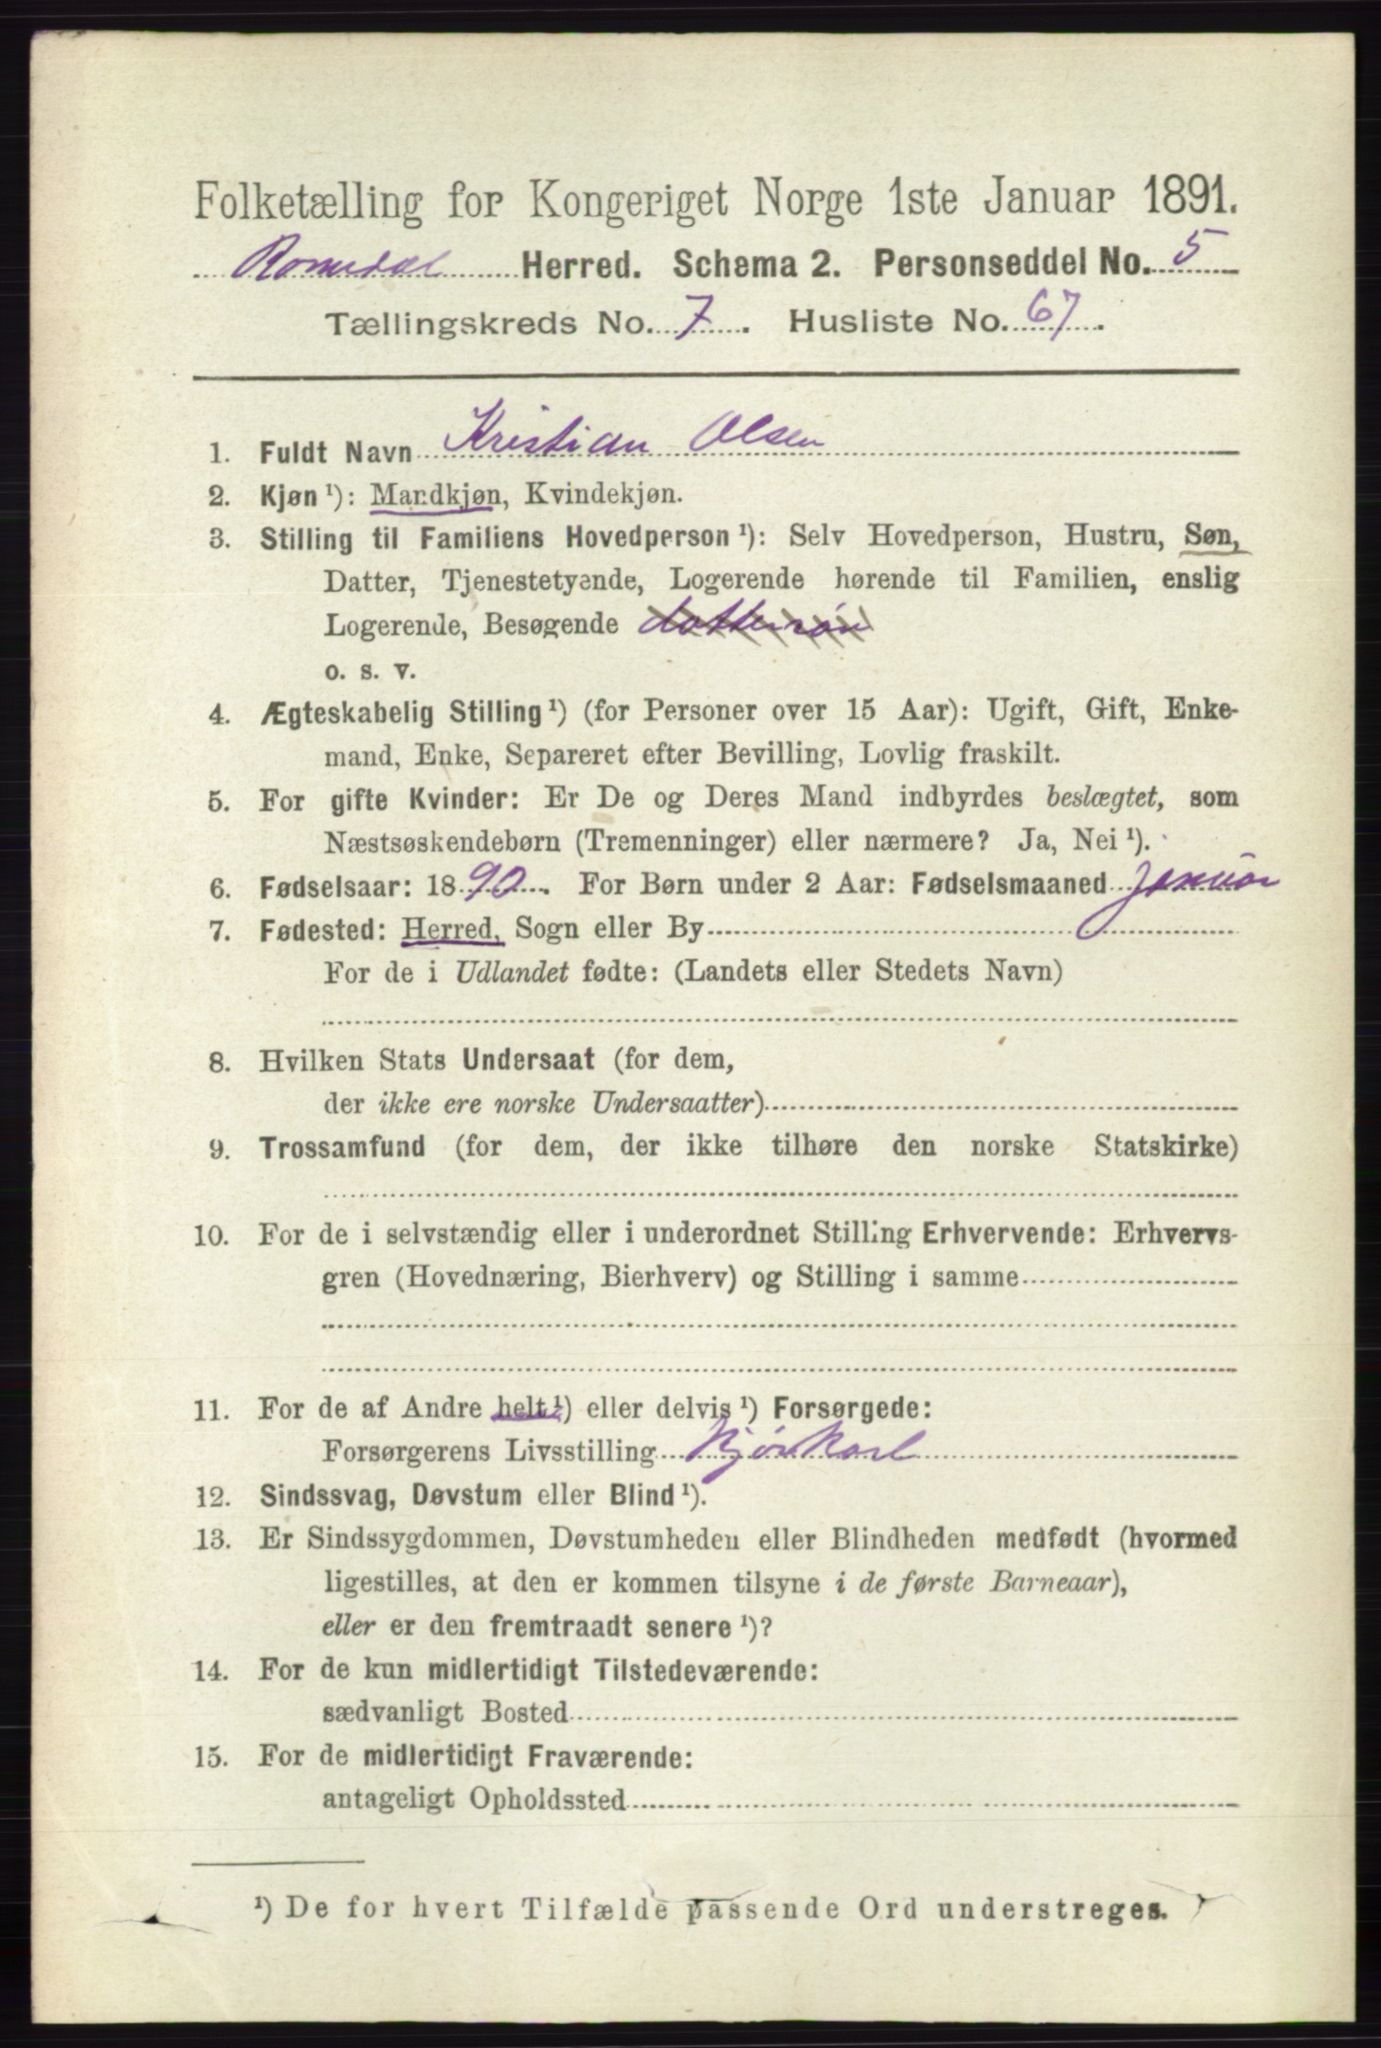 Folketælling for Kongeriget Norge 1ste Januar 1891.
Romedal Herred. Schema 2. Personseddel No. 5
Tællingskreds No. 7. Husliste No. 67.
1. Fuldt Navn Kristian Olsen
2. Kjøn ¹): Mandkjøn, Kvindekjøn.
3. Stilling til Familiens Hovedperson ¹): Selv Hovedperson, Hustru, Søn,
Datter, Tjenestetyende, Logerende hørende til Familien, enslig
Logerende, Besøgende dattersøn
o. s. v.
4. Ægteskabelig Stilling ¹) (for Personer over 15 Aar): Ugift, Gift, Enke-
mand, Enke, Separeret efter Bevilling, Lovlig fraskilt.
5. For gifte Kvinder: Er De og Deres Mand indbyrdes beslægtet, som
Næstsøskendebørn (Tremenninger) eller nærmere? Ja, Nei ¹).
6. Fødselsaar: 1890. For Børn under 2 Aar: Fødselsmaaned Januar
7. Fødested: Herred, Sogn eller By
For de i Udlandet fødte: (Landets eller Stedets Navn)
8. Hvilken Stats Undersaat (for dem,
der ikke ere norske Undersaatter)
9. Trossamfund (for dem, der ikke tilhøre den norske Statskirke)
10. For de i selvstændig eller i underordnet Stilling Erhvervende: Erhvervs-
gren (Hovednæring, Bierhverv) og Stilling i samme
11. For de af Andre helt ¹) eller delvis ¹) Forsørgede:
Forsørgerens Livsstilling
12. Sindssvag, Døvstum eller Blind ¹).
13. Er Sindssygdommen, Døvstumheden eller Blindheden medfødt (hvormed
ligestilles, at den er kommen tilsyne i de første Barneaar),
eller er den fremtraadt senere ¹)?
14. For de kun midlertidigt Tilstedeværende:
sædvanligt Bosted
15. For de midlertidigt Fraværende:
antageligt Opholdssted
¹) De for hvert Tilfælde passende Ord understreges.